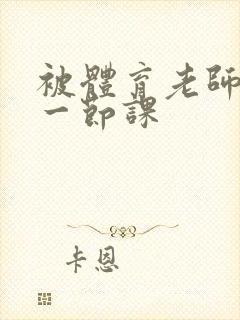 被體育老師
一節課
卡恩